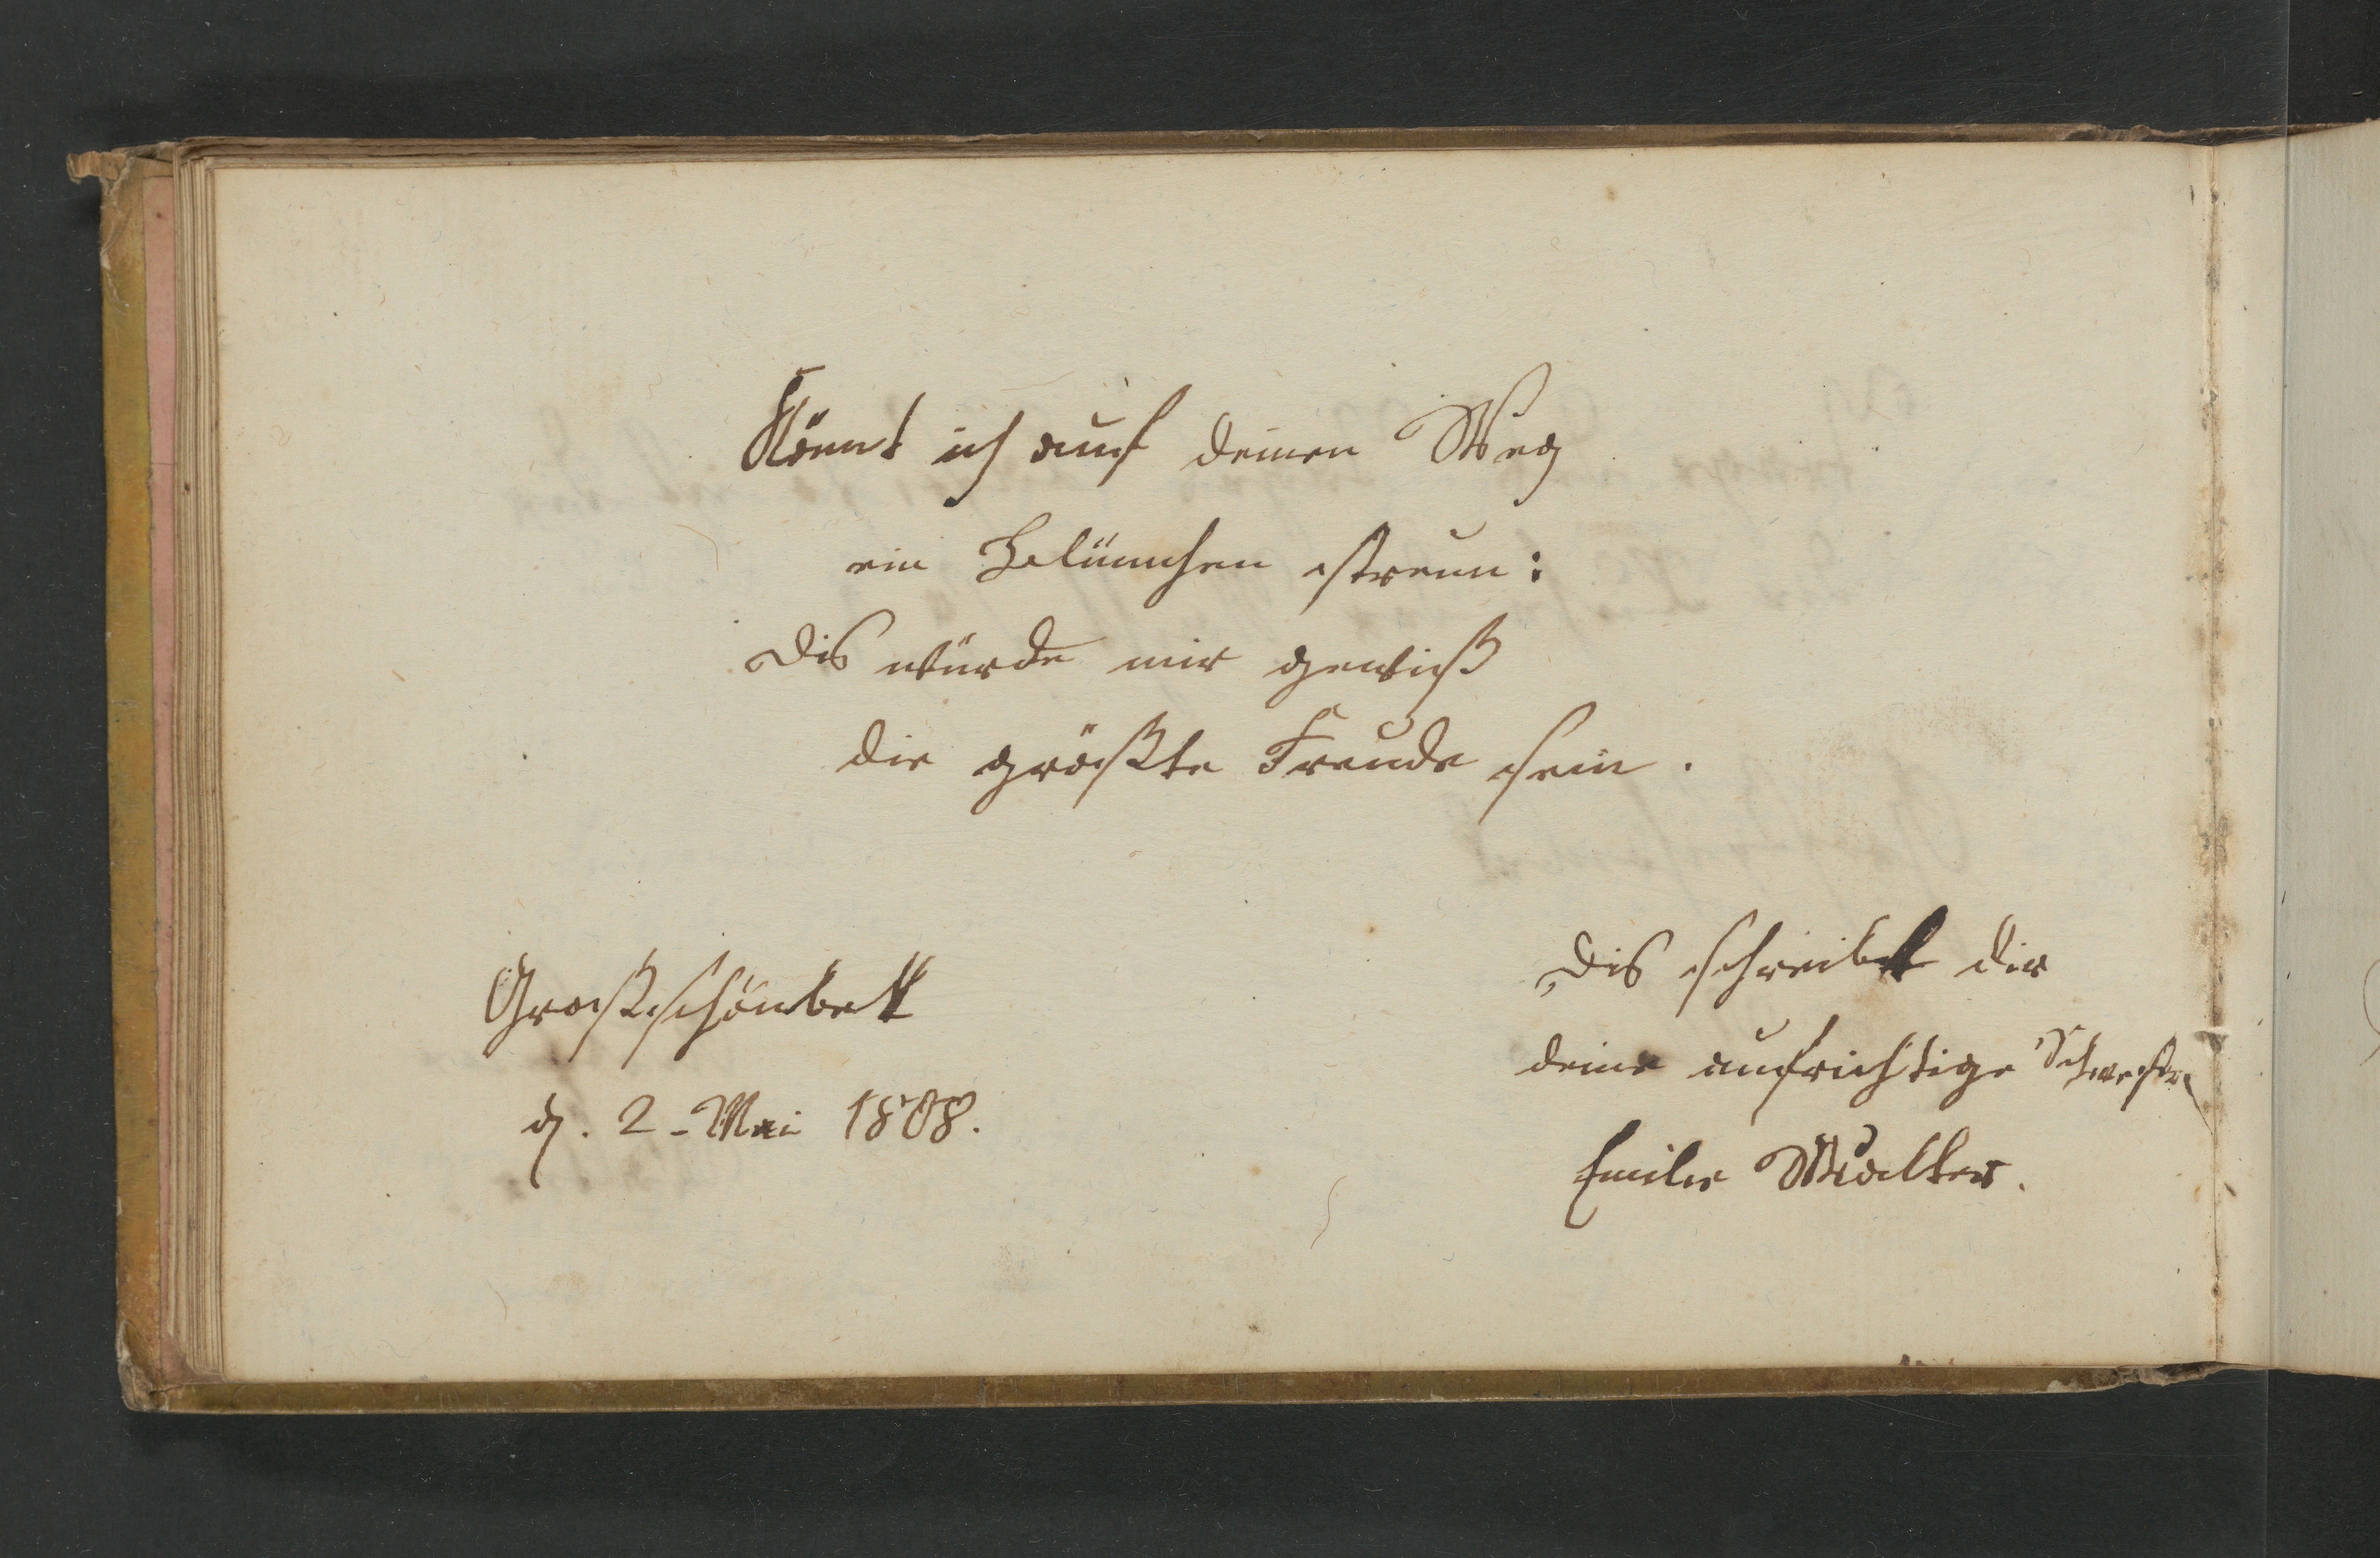 Könnt ich auf deinen Weg
ein Blümchen streun:
Dis würde mir gewiß
die größte Freude sein.
Großschönbek
d. 2. Mai 1808.
Dis schreibt dir
deine aufrichtige Schwester
Emilie Walter.